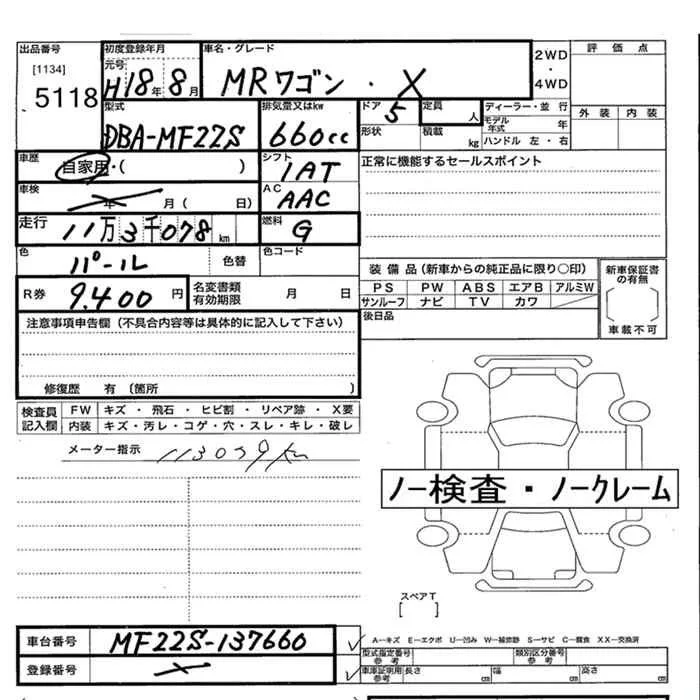 出品番号 [1134] 5118
初度登録年月 元号 H18年 8月
車名・グレード MRワゴン・X
2WD・4WD
評価点
外装 内装
型式 DBA-MF22S
排気量又はkw 660cc
ドア 5 形状
定員 人 積載 kg
ディーラー・並行
モデル年式 年
ハンドル 左・右
車歴 自家用・( )
シフト 1AT
正常に機能するセールスポイント
車検 年 月( 日)
AC AAC
走行 11万3千078km
燃料 G
色 パール 色替
色コード
装備品(新車からの純正品に限り○印)
PS PW ABS エアB アルミW
サンルーフ ナビ TV カワ
新車保証書の有無
車載不可
R券 9,400円
名変書類有効期限 月 日
後日品
注意事項申告欄(不具合内容等は具体的に記入して下さい)
修復歴 有 (箇所 )
検査員記入欄
FW キズ・飛石・ヒビ割・リペア跡・X要
内装 キズ・汚レ・コゲ・穴・スレ・キレ・破レ
メーター指示
ノー検査・ノークレーム
スペアT [ ]
車台番号 MF22S-137660
登録番号
A―キズ E―エクボ U―凹み W―補修跡 S―サビ C―腐食 XX―交換済
型式指定番号 参考
類別区分番号 参考
車庫証明用 参考 長さ cm 幅 cm 高さ cm